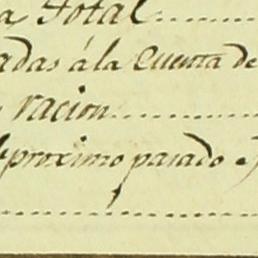 a Total
adas á la Cuenta de
racion
proximo pasado